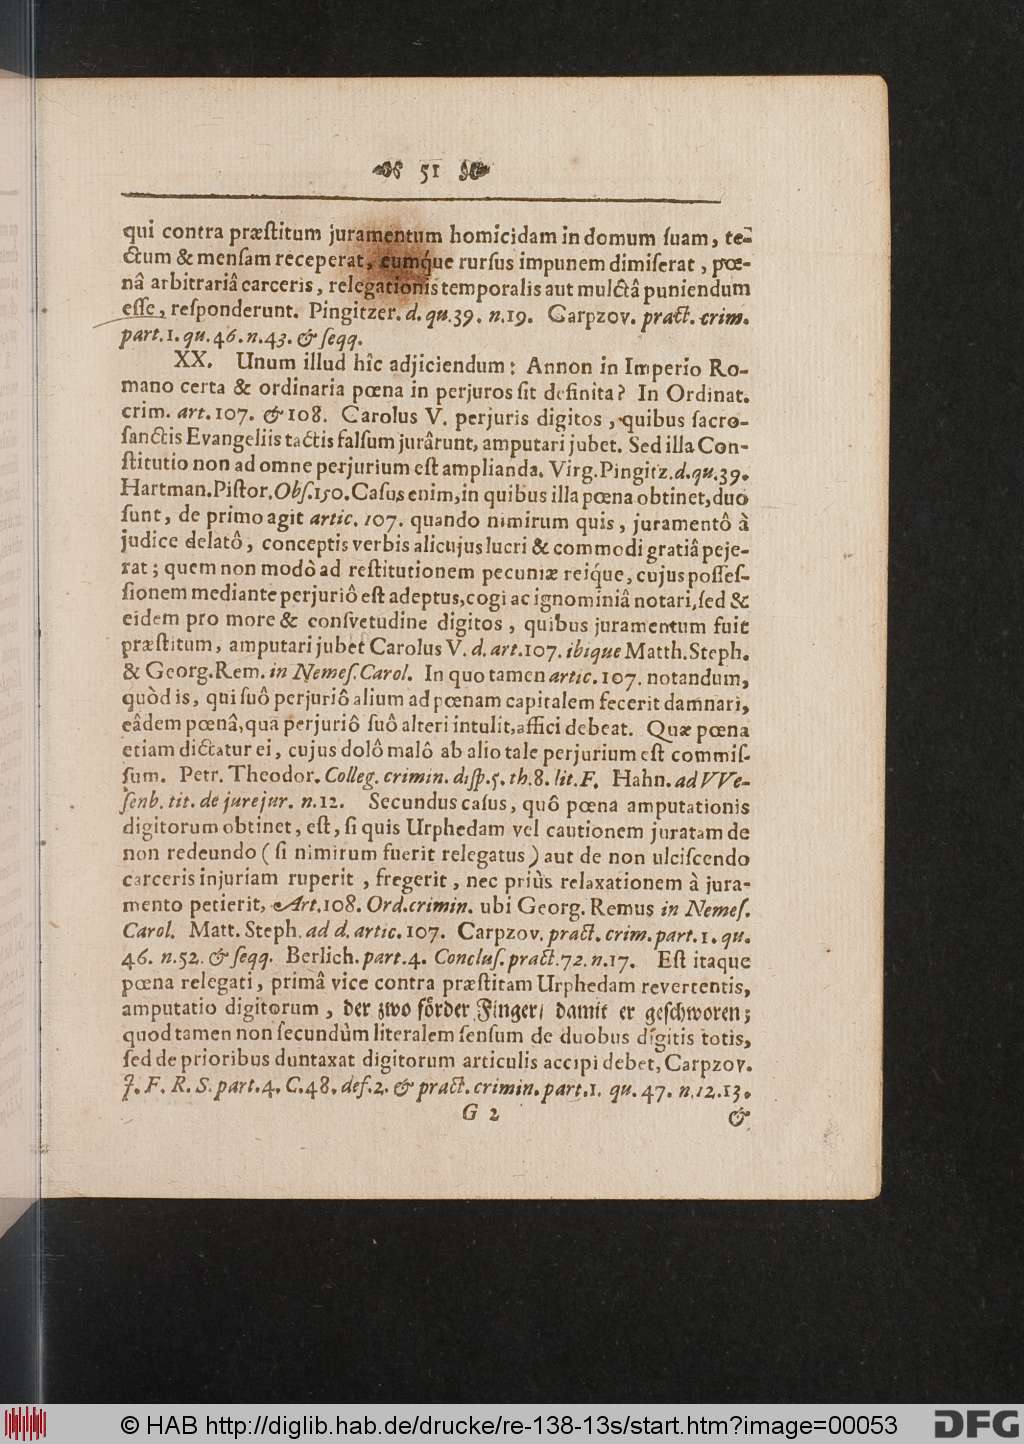 51
qui contra præſtitum juramentum homicidam in domum ſuam, te-
ctum & menſam receperat, eumq́ue rurſus impunem dimiſerat, pœ-
nâ arbitrariâ carceris, relegationis temporalis aut mulctâ puniendum
eſſe, reſponderunt. Pingitzer. d. qu. 39. n. 19. Carpzov. pract. crim.
part. 1. qu. 46. n. 43. & ſeqq.
XX. Unum illud hîc adjiciendum: Annon in Imperio Ro-
mano certa & ordinaria pœna in perjuros ſit definita? In Ordinat.
crim. art. 107. & 108. Carolus V. perjuris digitos, quibus ſacro-
ſanctis Evangeliis tactis falſum jurârunt, amputari jubet. Sed illa Con-
ſtitutio non ad omne perjurium eſt amplianda. Virg. Pingitz. d. qu. 39.
Hartman. Piſtor. Obſ. 150. Caſus enim, in quibus illa pœna obtinet, duo
ſunt, de primo agit artic. 107. quando nimirum quis, juramentô à
judice delatô, conceptis verbis alicujus lucri & commodi gratiâ peje-
rat; quem non modò ad reſtitutionem pecuniæ reiq́ue, cujus poſſeſ-
ſionem mediante perjuriô eſt adeptus, cogi ac ignominiâ notari, ſed &
eidem pro more & conſvetudine digitos, quibus juramentum fuit
præſtitum, amputari jubet Carolus V. d. art. 107. ibique Matth. Steph.
& Georg. Rem. in Nemeſ. Carol. In quo tamen artic. 107. notandum,
quòd is, qui ſuô perjuriô alium ad pœnam capitalem fecerit damnari,
eâdem pœnâ, qua perjuriô ſuô alteri intulit, affici debeat. Quæ pœna
etiam dictatur ei, cujus dolô malô ab alio tale perjurium eſt commiſ-
ſum. Petr. Theodor. Colleg. crimin. diſp. 5. th. 8. lit. F. Hahn. ad VVe-
ſenb. tit. de jurejur. n. 12. Secundus caſus, quô pœna amputationis
digitorum obtinet, eſt, ſi quis Urphedam vel cautionem juratam de
non redeundo (ſi nimirum fuerit relegatus) aut de non ulciſcendo
carceris injuriam ruperit, fregerit, nec priùs relaxationem à jura-
mento petierit, Art. 108. Ord. crimin. ubi Georg. Remus in Nemeſ.
Carol. Matt. Steph. ad d. artic. 107. Carpzov. pract. crim. part. 1. qu.
46. n. 52. & ſeqq. Berlich. part. 4. Concluſ. pract. 72. n. 17. Eſt itaque
pœna relegati, primâ vice contra præſtitam Urphedam revertentis,
amputatio digitorum, der zwo förder Finger/ damit er geſchworen;
quod tamen non ſecundùm literalem ſenſum de duobus digitis totis,
ſed de prioribus duntaxat digitorum articulis accipi debet, Carpzov.
J. F. R. S. part. 4. C. 48. def. 2. & pract. crimin. part. 1. qu. 47. n. 12. 13.
G 2 &
© HAB http://diglib.hab.de/drucke/re-138-13s/start.htm?image=00053 DFG